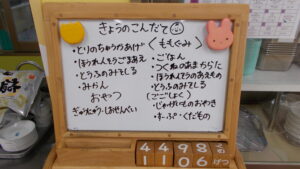 きょうのこんだて
・とりのちゅうかあげ
・ほうれんそうごまあえ
・とうふのみそしる
・みかん
おやつ
ぎゅうにゅう・しおせんべい
〈ももぐみ〉
・ごはん
・つくねのあまからに
・ほうれんそうのあえもの
・とうふのみそしる
(ごごしょく)
・じゃがいものおやき
・すーぷ・くだもの
4 4 9 8
1 1 0 6 がつ